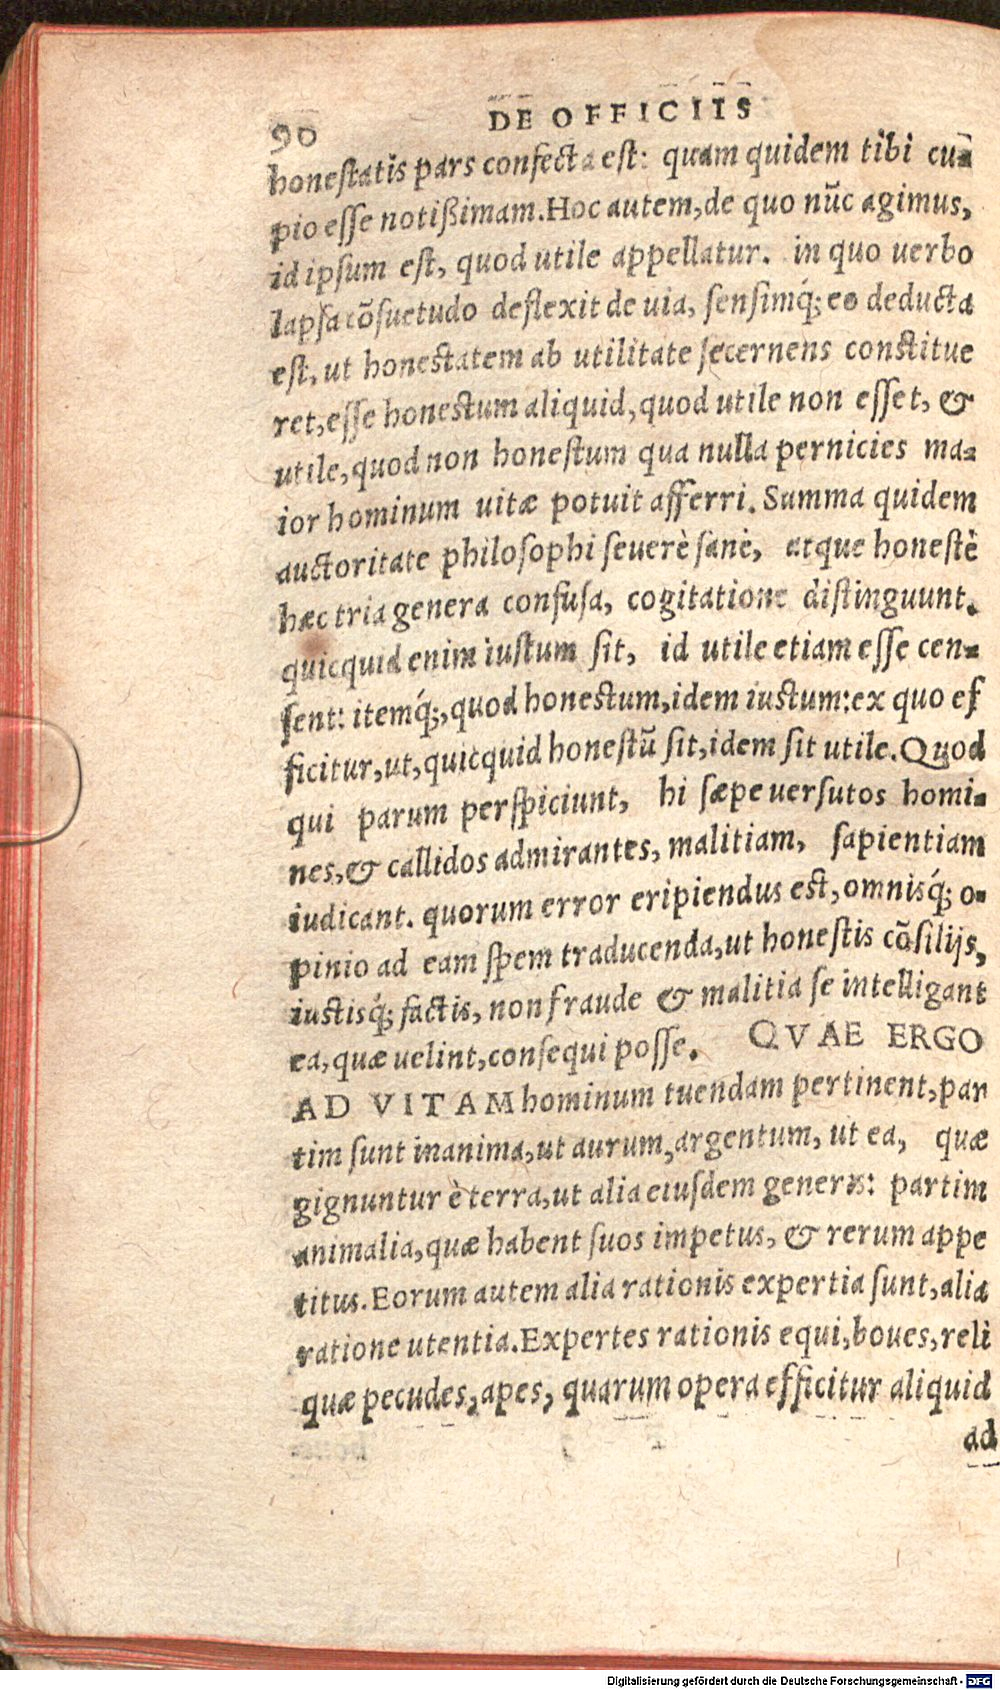 90
DE OFFICIIS
honestatis pars confecta est: quam quidem tibi cu⸗
pio esse notißimam.Hoc autem,de quo nūc agimus,
id ipsum est, quod utile appellatur. in quo uerbo
lapsa cōsuetudo deflexit de uia, sensimq́; eo deducta
est, ut honestatem ab utilitate secernens constitue
ret,esse honestum aliquid,quod utile non esset, &
utile,quod non honestum qua nulla pernicies ma⸗
ior hominum uitæ potuit afferri. Summa quidem
auctoritate philosophi seuerè sanè, atque honestè
hæc tria genera confusa, cogitatione distinguunt.
quicquid enim iustum sit, id utile etiam esse cen⸗
sent: itemq́;,quod honestum,idem iustum:ex quo ef
ficitur,ut,quicquid honestū sit,idem sit utile. Quod
qui parum perspiciunt, hi sæpe uersutos homi⸗
nes,& callidos admirantes, malitiam, sapientiam
iudicant. quorum error eripiendus est,omnisq́; o⸗
pinio ad eam spem traducenda,ut honestis cōsilijs,
iustisq́; factis, non fraude & malitia se intelligant
ea,quæ uelint,consequi posse. QVAE ERGO
AD VITAM hominum tuendam pertinent,par
tim sunt inanima,ut aurum,argentum, ut ea, quæ
gignuntur è terra,ut alia eiusdem generis: partim
animalia,quæ habent suos impetus, & rerum appe
titus. Eorum autem alia rationis expertia sunt,alia
ratione utentia. Expertes rationis equi,boues,reli
quæ pecudes,apes, quarum opera efficitur aliquid
ad
Digitalisierung gefördert durch die Deutsche Forschungsgemeinschaft - DFG